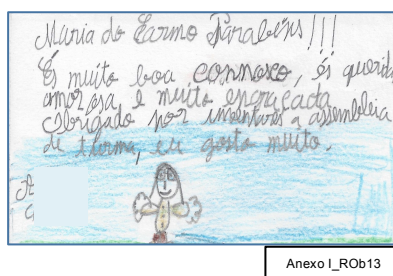 Maria do Carmo Parabéns!!!
És muito boa connosco, és querida
amorosa e muito engraçada
Obrigado por inventares a assembleia
de turma, eu gosto muito.
Anexo I_ROb13